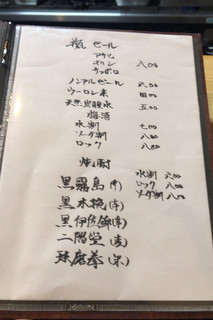 瓶 ビール
アサヒ
キリン 八〇〇
サッポロ
ノンアルビール 六〇〇
ウーロン茶 四〇〇
天然炭酸水 五〇〇
梅酒
水割 七〇〇
ソーダ割 八〇〇
ロック 八〇〇
焼酎
黒霧島(芋) 水割 六〇〇
ロック 八〇〇
黒木挽(芋) ソーダ割 八〇〇
黒伊佐錦(芋)
二階堂(麦)
球磨拳(米)